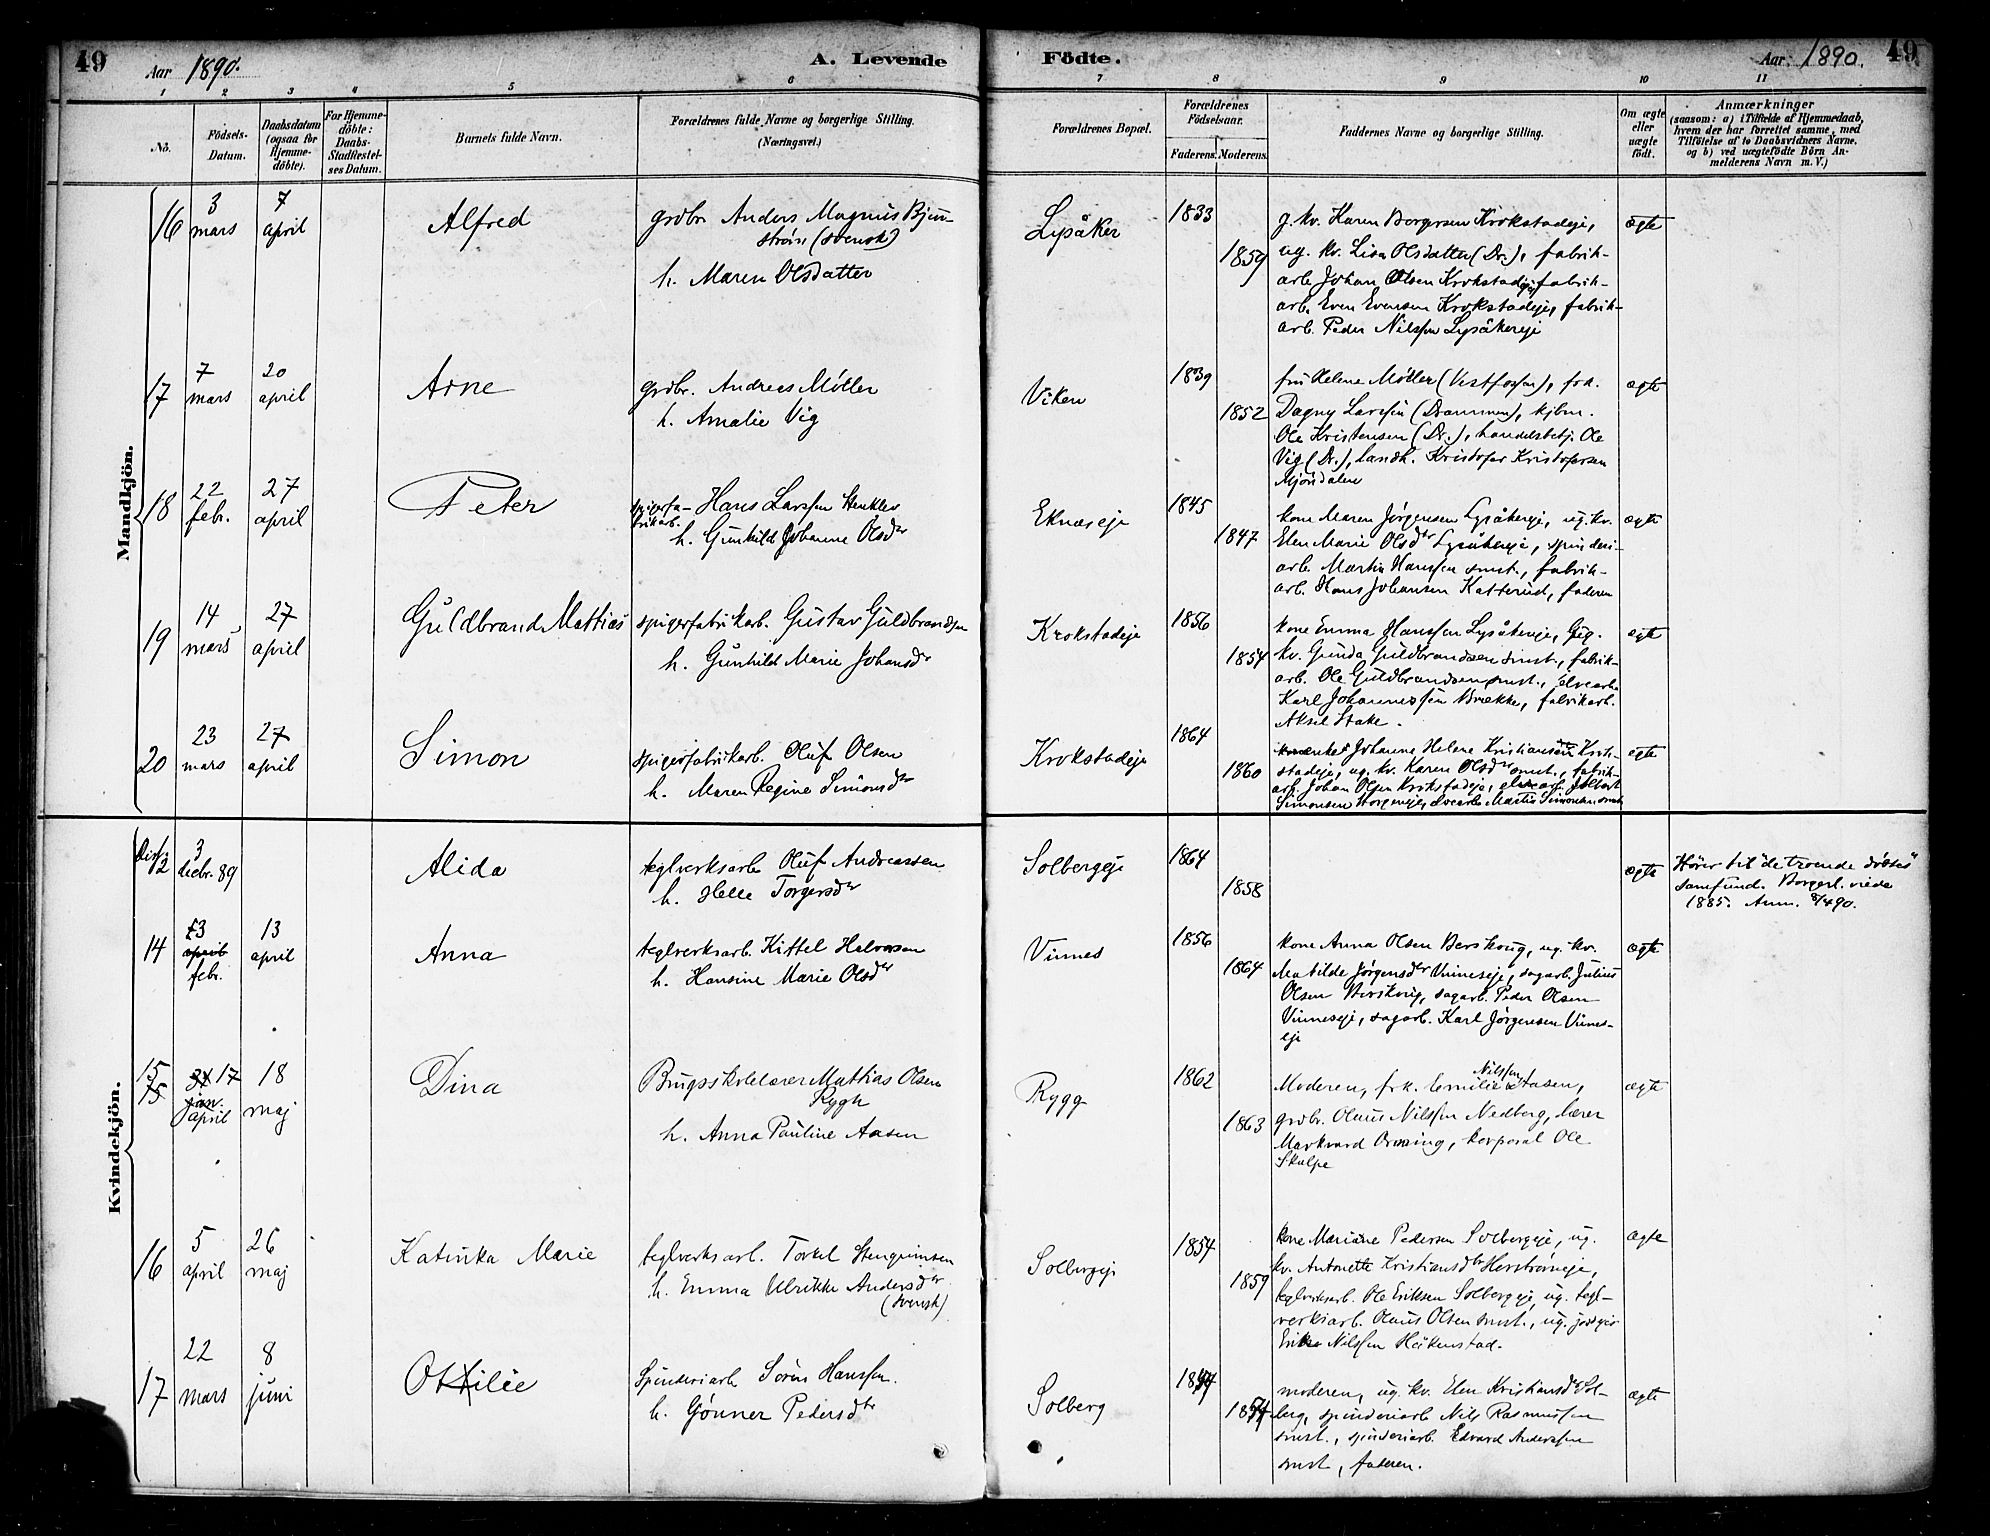 49
Aar 1890.
A. Levende
Födte.
Aar 1890.
49
1 2 3 4 5 6 7 8 9 10 11
No.
Födsels-
Datum.
Daabsdatum
(ogsaa for
Hjemme-
döbte).
For Hjemme-
döbte:
Daabs-
Stadfæstel-
ses Datum.
Barnets fulde Navn.
Forældrenes fulde Navne og borgerlige Stilling.
(Næringsvei.)
Forældrenes Bopæl.
Forældrenes
Födselsaar.
Faderens. Moderens.
Faddernes Navne og borgerlige Stilling.
Om ægte
eller
uægte
födt.
Anmærkninger
(saasom: a) i Tilfælde af Hjemmedaab,
hvem der har forrettet samme, med
Tilföielse af to Daabsvidners Navne,
og b) ved uægtefödte Börn An-
melderens Navn m. V.)
Mandkjön.
16
3
mars
7
april
Alfred
grdbr. Anders Magnus Bjur-
ström (svensk)
h. Maren Olsdatter
Lysåker
1833
1859
g. kv. Karen Borgersen Krokstadeje,
ug. kv. Lisa Olsdatter (Dr.), fabrik-
arb. Johan Olsen Krokstadeje, fabrik-
arb. Even Evensen Krokstadeje, fabrik-
arb. Peder Nilssen Lysåkereje
ægte
17
7
mars
20
april
Arne
grdbr. Andreas Møller
h. Amalie Vig
Viken
1839
1852
fru Helene Møller (Vestfossen), frk.
Dagny Larssen (Drammen), kjbm.
Ole Kristensen (Dr.), handelsbetj. Ole
Vig (Dr.), landh. Kristofer Kristofersen
Mjöndalen
ægte
18
22
febr.
27
april
Peter
spigerfa-
brikarb. Hans Larssen Stenklev
h. Gunhild Johanne Olsdtr
Eknæseje
1845
1847
kone Maren Jørgensen Lysåkereje, ug. kv.
Elen Marie Olsdtr Lysåkereje, spinderi-
arb. Martin Hanssen smst., fabrik-
arb. Hans Johansen Katterud, faderen
ægte
19
14
mars
27
april
Guldbrand Mattias
spigerfabrikarb. Gustav Guldbrandsen
h. Gunhild Marie Johansdr
Krokstadeje
1856
1854
kone Emma Hanssen Lysåkereje, ug.
kv. Gunda Guldbrandsen smst., fabrik-
arb. Ole Guldbrandsen smst., elvearb.
Karl Johannessen Brække, fabrikarb.
Aksel Stake.
ægte
20
23
mars
27
april
Simon
spigerfabrikarb. Oluf Olsen
h. Maren Regine Simonsdtr
Krokstadeje
1864
1860
enke Johanne Helene Kristiansen Krok-
stadeje, ug. kv. Karen Olsdtr smst., fabrik-
arb. Johan Olsen Krokstadeje, elvearb.
Simonsen Horgeneje, elvearb. Martin Simonsen smst.
ægte
Kvindekjön.
2
3
decbr. 89
Alida
teglverksarb. Oluf Andreassen
h. Helle Torgersdtr
Solbergeje
1864
1858
ægte
Hører til "de troende döbtes"
samfund. Borgerl. viede
1885. Anm. 8/4 90.
14
23
april
febr.
13
april
Anna
teglverksarb. Kittel Halvorsen
h. Hansine Marie Olsdtr
Vinnes
1856
1864
kone Anna Olsen Berskoug, ug. kv.
Matilde Jørgensdtr Vinneseje, sagarb. Julius
Olsen Berskoug, sagarb. Peder Olsen
Vinneseje, sagarb. Karl Jørgensen Vinnes-
eje
ægte
15
15
17
jan.
april
18
maj
Dina
Brugsskolelærer Mattias Olsen
Rygh
h. Anna Pauline Aasen
Rygg
1862
1863
Moderen, frk. Emilie Nilssen Aasen,
grdbr. Olaus Nilssen Nedberg, lærer
Markvard Orning, korporal Ole
Skalpe
ægte
16
5
april
26
maj
Katinka Marie
teglverksarb. Torkel Stengrimsen
h. Emma Ulrikke Andersdtr
(svensk)
Solbergeje
1854
1859
kone Mariane Pedersen Solbergeje, ug.
kv. Antonette Kristiansdtr Herstrømeje,
teglverksarb. Ole Eriksen Solbergeje, ug. tegl-
verksarb. Olaus Olsen smst., ug.
Nilssen Håkenstad.
ægte
17
22
mars
8
juni
Ottilie
Spinderiarb. Sören Hanssen
h. Gönner Pedersdtr
Solberg
moderen, ug. kv. Elen Kristiansdtr Sol-
berg, spinderiarb. Nils Rasmussen
smst., spinderiarb. Edvard Anderssen
smst, faderen.
ægte